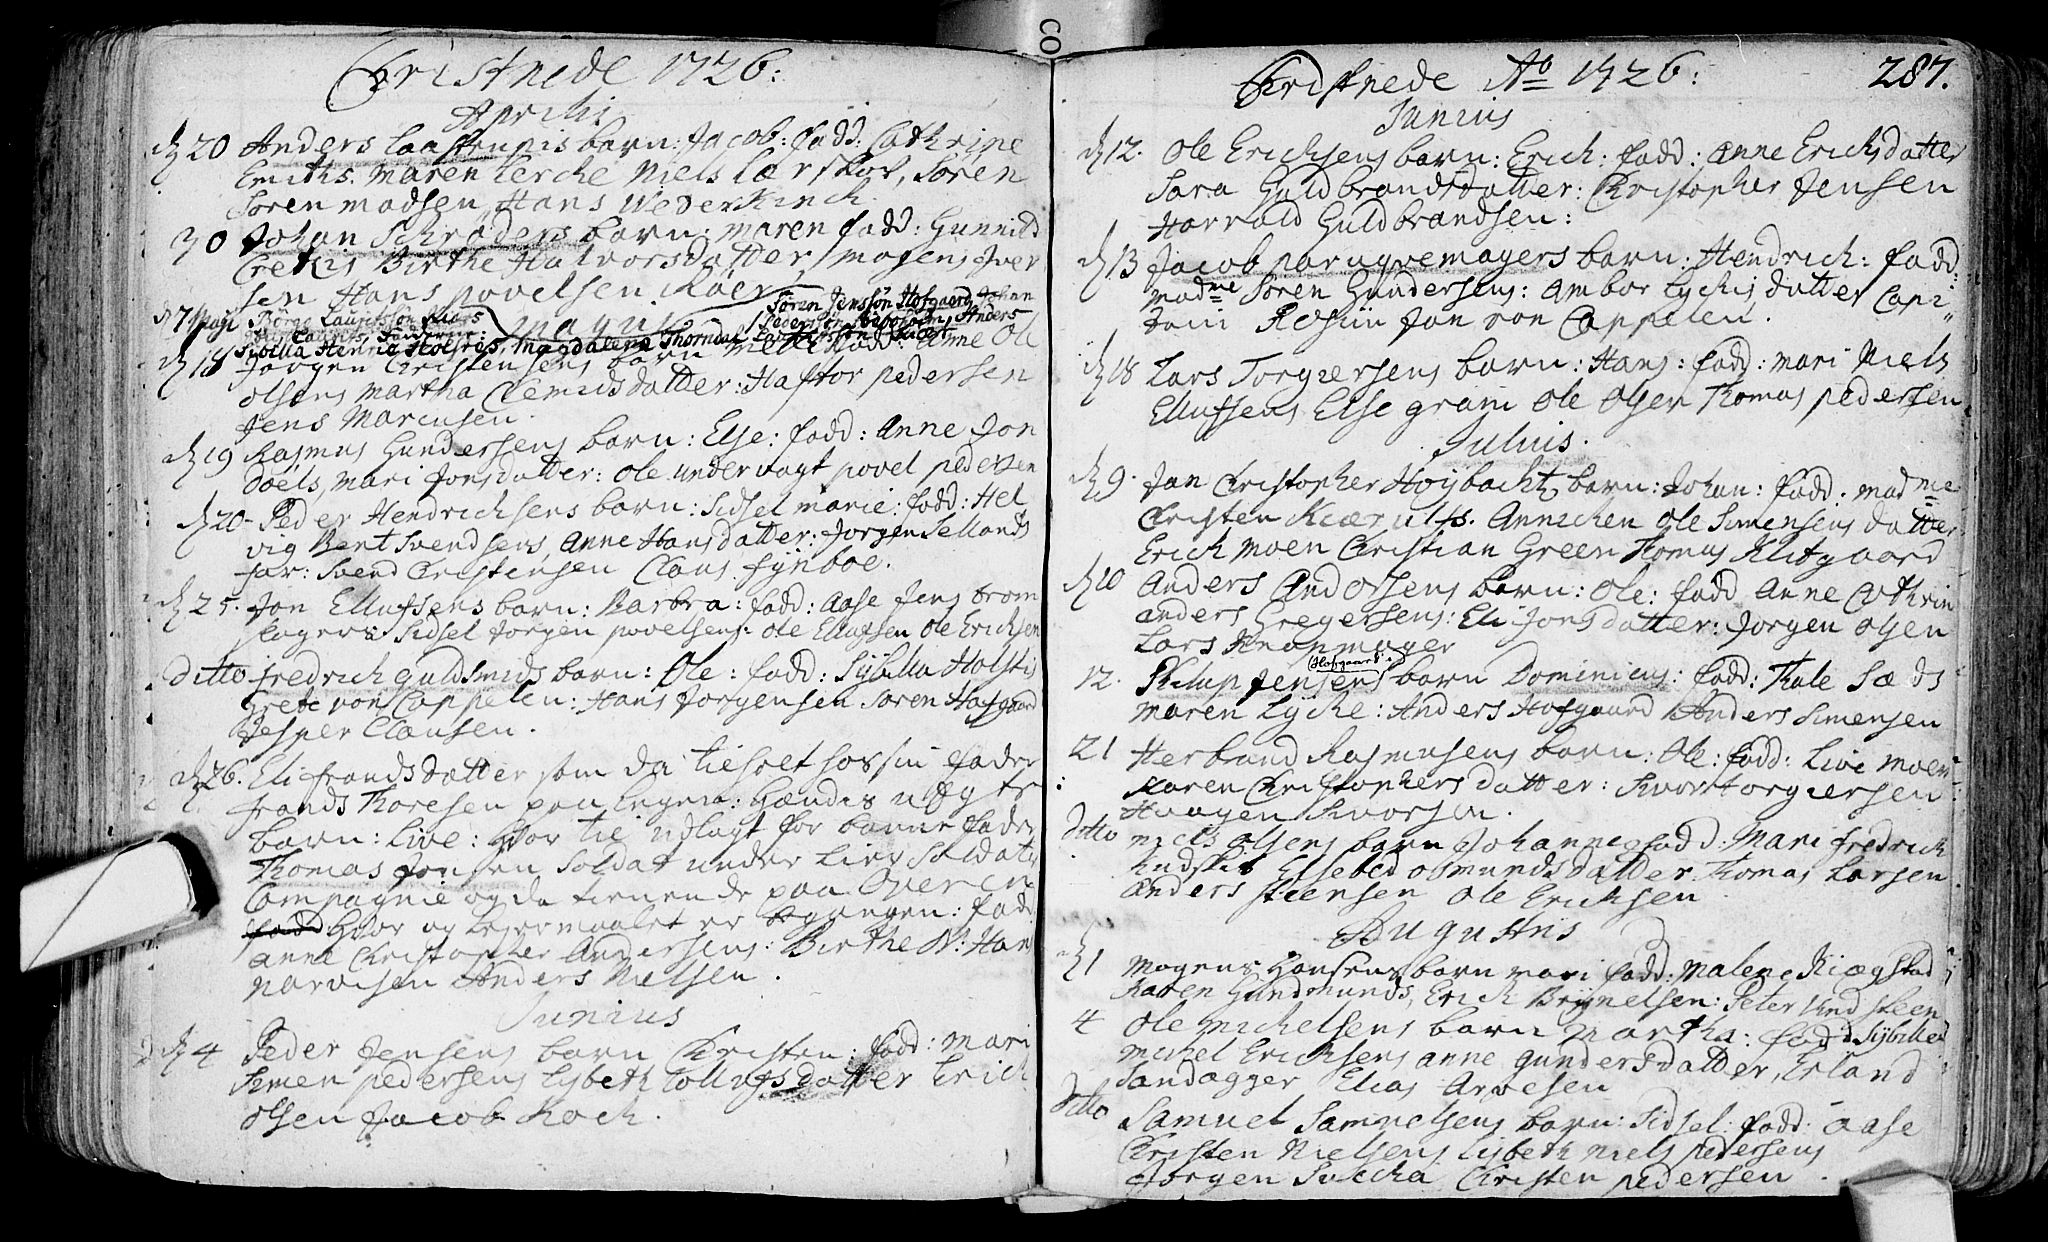 Christnede 1726:
Aprilis
d 20 Anders Laastrupis barn: Jacob: fadd: Cathrine
Smiths. Maren Lerche Niels Lærskov, Sören
Sören Madsen, Hans Wederkinch.
30 Johan Schröders barn: Maren fadd: Gunnild
Birthe Halvorsdatter, Mogens Iver
sen Hans Povelsen
d 7 Maji Börge Lauritssön barn
Majus
Sören Jenssön Hofgaard, Johan
Laurits, fadderne:
Pederssön Anders
Sibilla Henric Holstis, Magdalena Thorndal
d 18 Jörgen Christensens barn fadd: Anne Ole
Olsens Martha Clemidsdatter: Haftor Pedersen
Jens Marcusen.
d 19 Rasmus Gundersens barn: Else: fadd: Anne Jon
Döels, Mari Jonsdatter: Ole undervagt Povel Pedersen
d 20- Peder Hendrichsens barn: Sidsel Marie: fadd: Hel
vig Bent Svendsens, Anne Hansdatter: Jorgen Sellands
far: Svend Christensen Claus Fynboe.
d 25. Jon Ellufsens barn: Barbra: fadd: Aase Jens brom
slagers Sidsel Jorgen Povelsens: Ole Ellufsen Ole Ericksen
ditto Fredrich Guldsmids barn: Ole: fadd: Sÿbilla Holstis
Grete von Cappelen: Hans Jorgensen Sören Hofgaard
Jesper Clausen.
d 26. Eli Frandsdatter som da tilholt hos sin fader
Frands Thoresen paa Eegern: Hændis uægte
barn: Live: Hvor til udlagt for barne fader
Thomas Jonsen Soldat under Lier Soldatis
Compagnie og da tienende paa Overen
Hvor og Lejermaalet er begangen: fadd:
Anne Christopher Andersens: Birthe N: Han
Narvesen Anders Nielsen.
Junius
d 4 Peder Jensens barn Christen: fadd: Mari
Simen Pedersens Lisbeth Tollufsdatter Erich
Olsen Jacob Koch.
Christnede Ao 1726: 287.
Junius
d 12. Ole Ericksens barn: Erich: fadd: Anne Ericksdatter
Sara Guldbrandsdatter: Christopher Jensen
Harrald Guldbrandsen:
d 13 Jacob Paruqvemagers barn: Hendrich: fadd:
Madme Sören Gundersens: Ambor Lÿchis datter Capi
tain Rosiin Jan von Cappelen.
d 18 Lars Torgiersens barn: Hans: fadd: Mari Niels
Ellufsens Else Gram Ole Olsen Thomas Pedersen
Julius.
d 9. Jan Christopher Höybachts barn: Johan: fadd: madme
Christen Kierulfs. Annichen Ole Simensens datter
Erich Moen Christian Green Thomas Klitgaard
d 10 Anders Andorsens barn: Ole: fadd Anne Cathrin
Anders Gregersens: Eli Jonsdatter: Jorgen Olsen
Lars Knapmager
(Hofgaard)
12. Philup Jensens barn Dominicus: fadd: Thale Sæds
Maren Lÿche: Anders Hofgaard Anders Simensen
21 Herbrand Rasmusens barn: Ole: fadd: Live Moen
Karen Christophersdatter: Sivor Torgiersen
Haagen Sivorsen.
ditto Niels Olsens barn Johanne fadd: Mari Fredrich
Knudsis Elsebed Osmundsdatter Thomas Larsen
Anders Steensen Ole Ericksen
Augustus
d 1 Mogens Hansens barn Mari fadd: Malene Kiægstad
Karen Gundmunds, Erick Brÿnelsen: Peter Knudsteen
4 Ole Michelsens barn Martha: fadd Sÿbille
Michel Ericksens Anne Gundersdatter, Erland
Sandagger Elias Arvesen
ditto Samuel Samuelsens barn: Sidsel: fadd: Aase
Christen Nielsens Lisbeth Niels Pedersens
Jorgen Christen Pedersen.